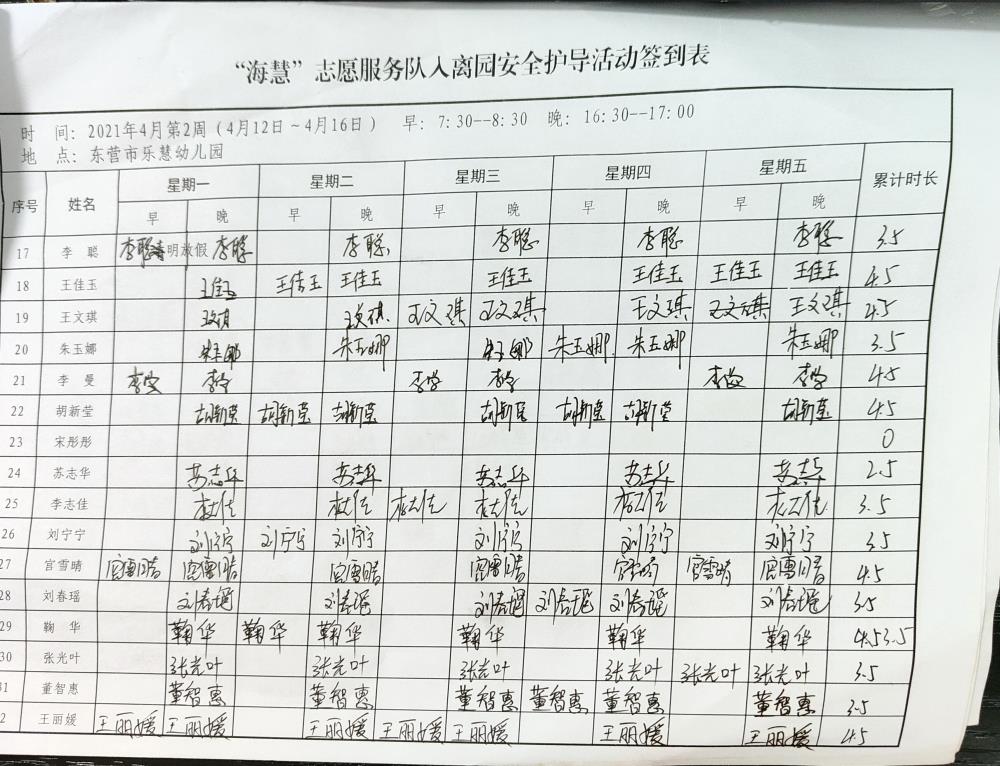 “海慧”志愿服务队入离园安全护导活动签到表
时 间: 2021年4月第2周(4月12日~4月16日) 早: 7:30--8:30 晚: 16:30--17:00
地 点: 东营市乐慧幼儿园
序号 姓名 星期一 星期二 星期三 星期四 星期五 累计时长
早 晚 早 晚 早 晚 早 晚 早 晚
17 李 聪 李聪 明放假 李聪 李聪 李聪 李聪 李聪 3.5
18 王佳玉 王佳玉 王佳玉 王佳玉 王佳玉 王佳玉 王佳玉 王佳玉 4.5
19 王文琪 王文琪 王文琪 王文琪 王文琪 王文琪 王文琪 王文琪 4.5
20 朱玉娜 朱玉娜 朱玉娜 朱玉娜 朱玉娜 朱玉娜 朱玉娜 3.5
21 李 曼 李曼 李曼 李曼 李曼 李曼 李曼 4.5
22 胡新莹 胡新莹 胡新莹 胡新莹 胡新莹 胡新莹 胡新莹 胡新莹 4.5
23 宋彤彤 0
24 苏志华 苏志华 苏志华 苏志华 苏志华 苏志华 2.5
25 李志佳 李志佳 李志佳 李志佳 李志佳 李志佳 李志佳 3.5
26 刘宁宁 刘宁宁 刘宁宁 刘宁宁 刘宁宁 刘宁宁 刘宁宁 3.5
27 宫雪晴 宫雪晴 宫雪晴 宫雪晴 宫雪晴 宫雪晴 宫雪晴 宫雪晴 4.5
28 刘春瑶 刘春瑶 刘春瑶 刘春瑶 刘春瑶 刘春瑶 刘春瑶 3.5
29 鞠 华 鞠华 鞠华 鞠华 鞠华 鞠华 鞠华 4.5 3.5
30 张光叶 张光叶 张光叶 张光叶 张光叶 张光叶 张光叶 3.5
31 董智惠 董智惠 董智惠 董智惠 董智惠 董智惠 董智惠 3.5
2 王丽媛 王丽媛 王丽媛 王丽媛 王丽媛 王丽媛 王丽媛 王丽媛 4.5